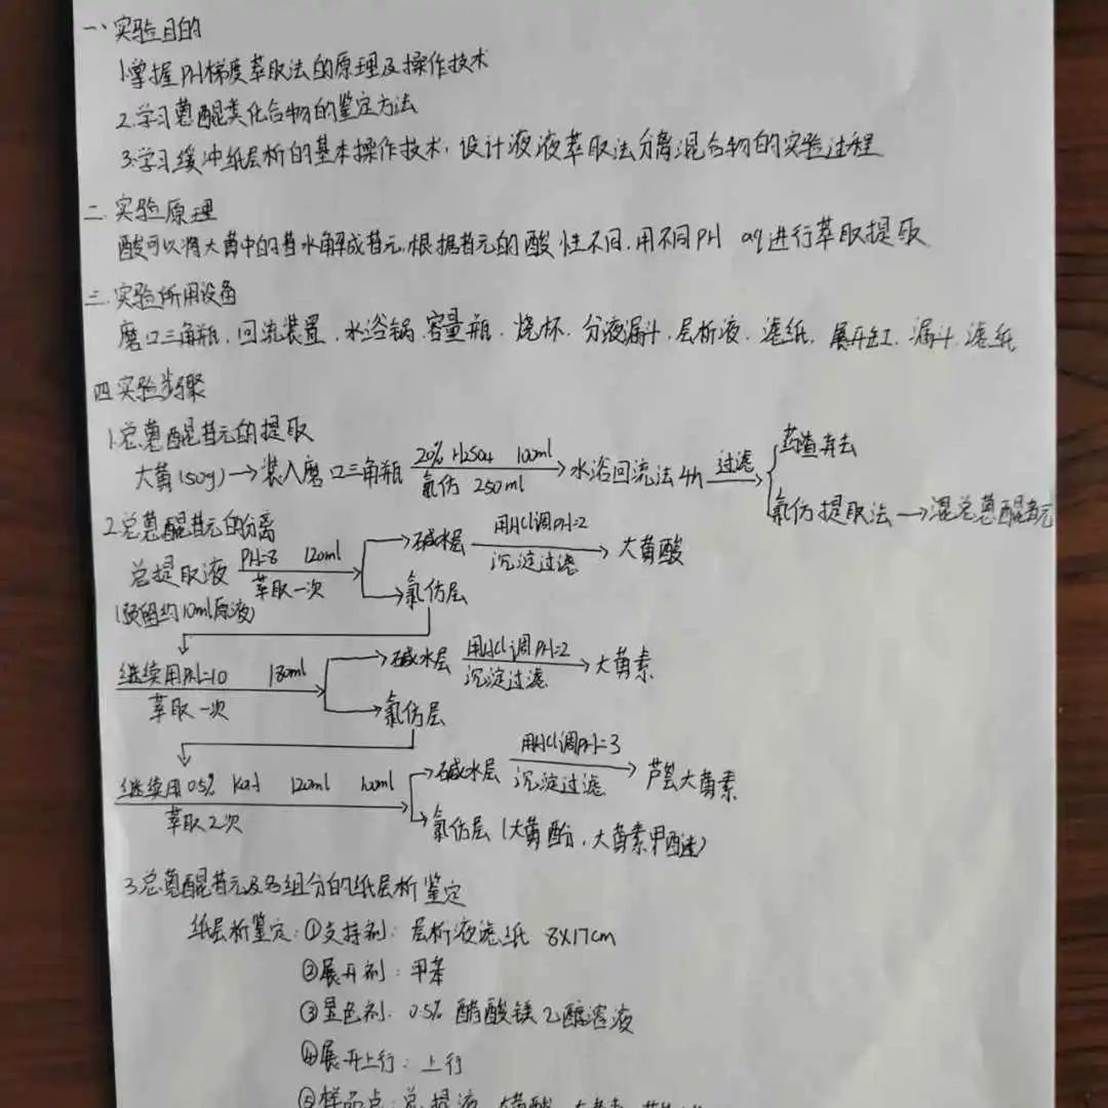 一、实验目的
1.掌握PH梯度萃取法的原理及操作技术
2.学习蒽醌类化合物的鉴定方法
3.学习缓冲纸层析的基本操作技术,设计液液萃取法分离混合物的实验过程
二.实验原理
酸可以将大黄中的苷水解成苷元,根据苷元的酸性不同,用不同PH aq进行萃取提取
三.实验所用设备
磨口三角瓶,回流装置.水浴锅.容量瓶.烧杯.分液漏斗.层析液.滤纸.展开缸.漏斗.滤纸
四.实验步骤
1.总蒽醌苷元的提取
大黄(50g)→装入磨口三角瓶 20% H2SO4 100ml 氯仿 250ml →水浴回流法4h 过滤 药渣弃去
氯仿提取法→混总蒽醌苷元
2.总蒽醌苷元的分离
总提取液 PH=8 120ml 萃取一次 碱水层 用HCl调PH=2 沉淀过滤 →大黄酸
(预留约10ml原液) 氯仿层
继续用PH=10 180ml 萃取一次 碱水层 用HCl调PH=2 沉淀过滤 →大黄素
氯仿层
继续用0.5% 120ml 100ml 萃取2次 碱水层 用HCl调PH=3 沉淀过滤 →芦荟大黄素
氯仿层(大黄酚,大黄素甲醚)
3.总蒽醌苷元及各组分的纸层析鉴定
纸层析鉴定:①支持剂:层析液滤纸 8X17cm
②展开剂:甲苯
③显色剂:0.5% 醋酸镁乙醇溶液
④展开上行:上行
⑤样品点:总提液